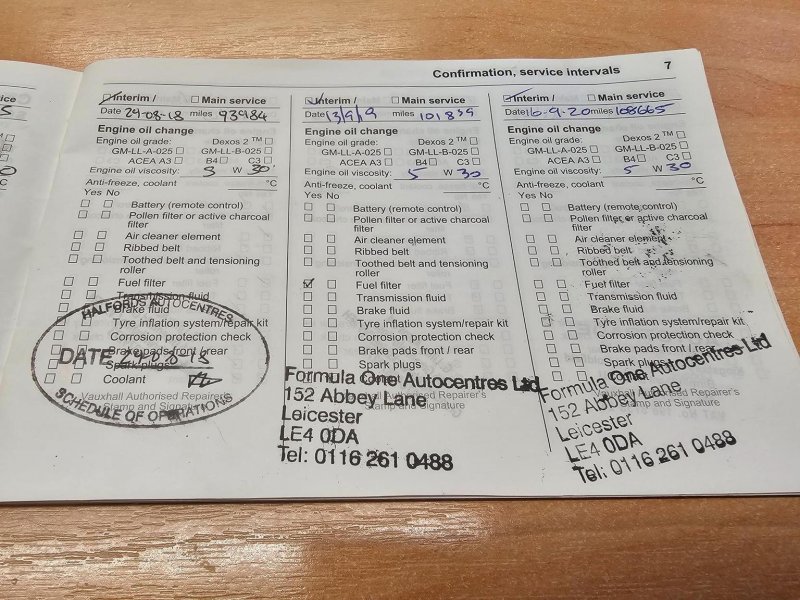 Confirmation, service intervals 7
Interim / Main service
Date 29-08-18 miles 93984
Engine oil change
Engine oil grade: Dexos 2 ™
GM-LL-A-025 GM-LL-B-025
ACEA A3 B4 C3
Engine oil viscosity: 5 W 30
Anti-freeze, coolant °C
Yes No
Battery (remote control)
Pollen filter or active charcoal
filter
Air cleaner element
Ribbed belt
Toothed belt and tensioning
roller
Fuel filter
Transmission fluid
Brake fluid
Tyre inflation system/repair kit
Corrosion protection check
Brake pads front / rear
Spark plugs
Coolant
Vauxhall Authorised Repairer's
Stamp and Signature
HALFORDS AUTOCENTRES
DATE
SCHEDULE OF OPERATIONS
Interim / Main service
Date 13/9/19 miles 101839
Engine oil change
Engine oil grade: Dexos 2 ™
GM-LL-A-025 GM-LL-B-025
ACEA A3 B4 C3
Engine oil viscosity: 5 W 30
Anti-freeze, coolant °C
Yes No
Battery (remote control)
Pollen filter or active charcoal
filter
Air cleaner element
Ribbed belt
Toothed belt and tensioning
roller
Fuel filter
Transmission fluid
Brake fluid
Tyre inflation system/repair kit
Corrosion protection check
Brake pads front / rear
Spark plugs
Authorised Repairer's
Stamp and Signature
Formula One Autocentres Ltd
152 Abbey Lane
Leicester
LE4 0DA
Tel: 0116 261 0488
Interim / Main service
Date 16.9.20 miles 108665
Engine oil change
Engine oil grade: Dexos 2 ™
GM-LL-A-025 GM-LL-B-025
ACEA A3 B4 C3
Engine oil viscosity: 5 W 30
Anti-freeze, coolant °C
Yes No
Battery (remote control)
Pollen filter or active charcoal
filter
Air cleaner element
Ribbed belt
Toothed belt and tensioning
roller
Fuel filter
Transmission fluid
Brake fluid
Tyre inflation system/repair kit
Corrosion protection check
Brake pads front / rear
Spark plugs
Vauxhall Authorised Repairer's
Stamp and Signature
Formula One Autocentres Ltd
152 Abbey Lane
Leicester
LE4 0DA
Tel: 0116 261 0488